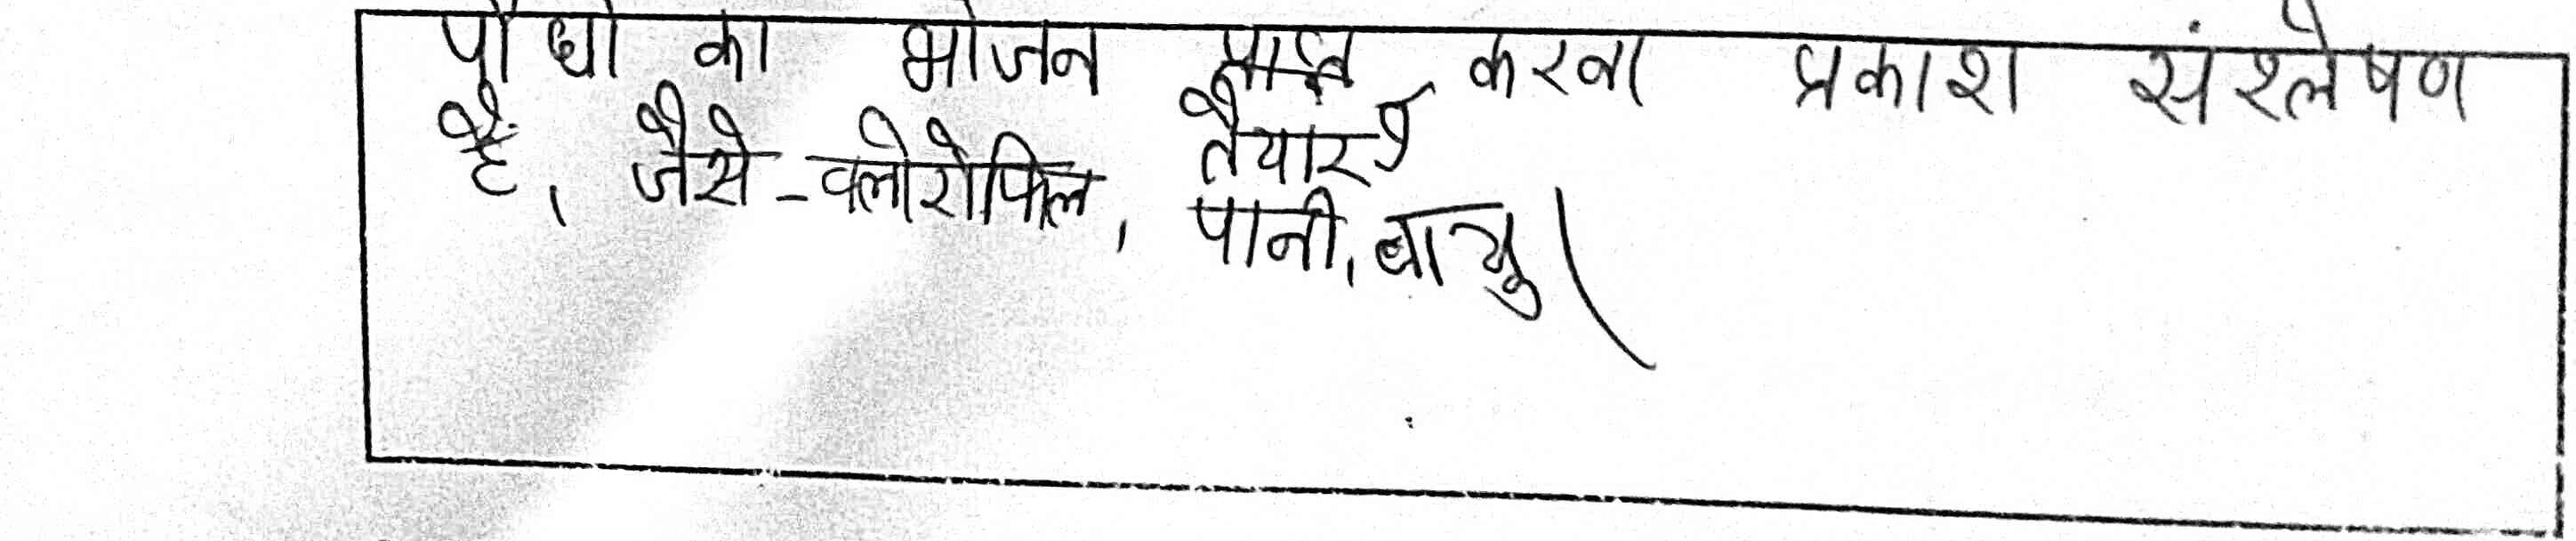 पौधों का भोजन तैयार करना प्रकाश संश्लेषण
है, जैसे-क्लोरोफिल, पानी, वायु।